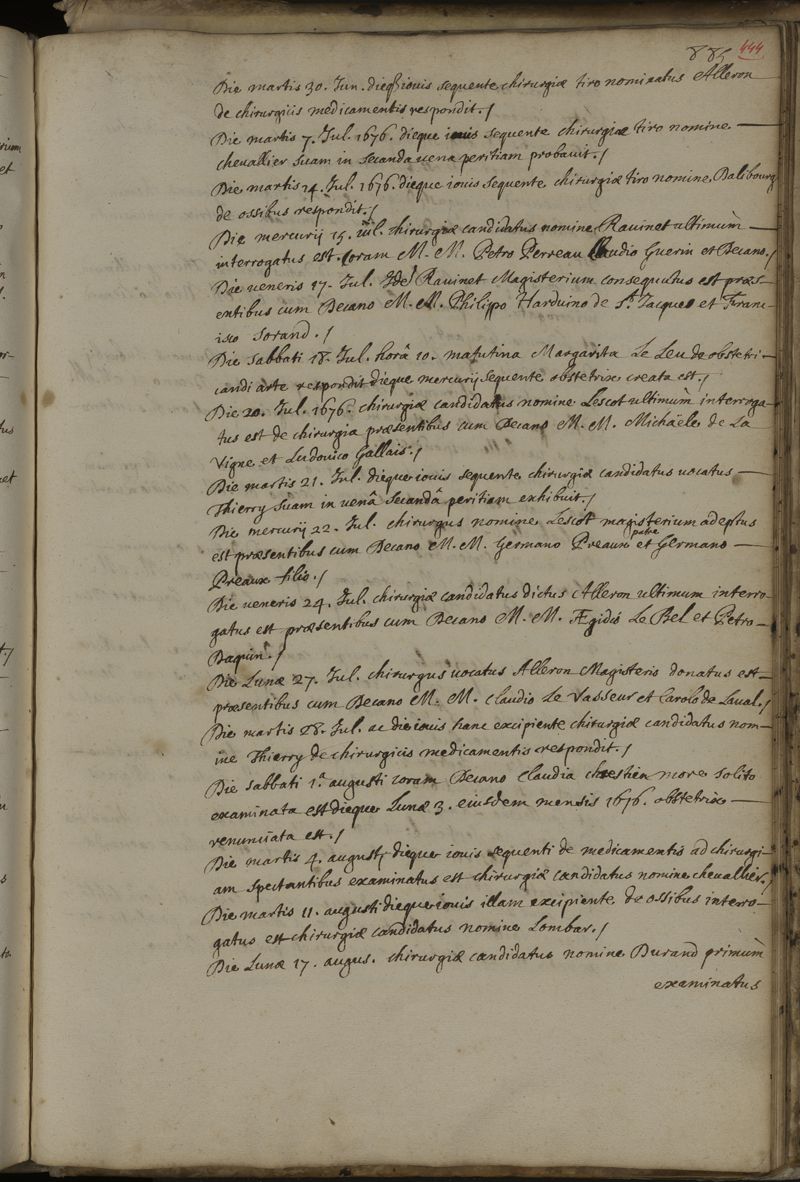 885 444
Die martis 30. Jun. dieq3 iouis sequente chirurgiæ tiro nominatus Alleron
de chirurgicis medicamentis respondit./
Die martis 7. Jul. 1676. dieque iouis sequente chirurgiæ tiro nomine —
chevallier suam in secanda uena peritiam probauit./
Die martis 14. Jul. 1676. dieque iouis sequente chirurgiæ tiro nomine Dalibourg
de ossibus respondit./
Die mercurij 15. iul. chirurgiæ candidatus nomine Rauinet ultimùm —
interrogatus est. coram M. M. Petro Perreau Claudio Guerin et Decano./
Die ueneris 17. Jul. Idē Rauinet Magisterium consequutus est præs-
entibus cum Decano M. M. Philippo Harduino de St. Jacques et Franc-
isco Sorand./
Die Sabbati 18. Jul. horâ 10. matutina Margarita Le Leu de obstetri-
candi arte respondit dieque mercurij sequente obstetrix creata est./
Die 20. Jul. 1676. chirurgiæ candidatus nomine Lescot ultimum interroga-
tus est de chirurgia præsentibus cum Decano M. M. Michäele de La
Vigne et Ludouico Gallais./
Die martis 21. Jul. dieque iouis sequente chirurgiæ candidatus uocatus —
Thierry suam in uenâ Secandâ peritiam exhibuit./
Die mercurij 22. Jul. chirurgus nomine Lescot magisterium adeptus
est præsentibus cum Decano M. M. Germano Preaux patre et Germano —
Preaux filio./
Die ueneris 24. Jul. chirurgiæ candidatus dictus Alleron ultimum interro-
gatus est præsentibus cum Decano M. M. Ægidio Le Bel et Petro —
Daquin./
Die Lunæ 27. Jul. chirurgus uocatus Alleron Magisterio donatus est —
præsentibus cum Decano M. M. Claudio Le Vasseur et Carolo de Laual./
Die martis 28. Jul. ac die iouis hanc excipiente chirurgiæ candidatus nom-
ine Thierry de chirurgicis medicamentis respondit./
Die Sabbati 1a. augusti coram Decano Claudia chrestien more solito
examinata est dieque Lunæ 3. eiusdem mensis 1676. obstetrix —
renuntiata est./
Die martis 4. augusti dieque iouis sequenti de medicamentis ad chirurgi-
am spectantibus examinatus est chirurgiæ candidatus nomine chevallier./
Die martis 11. augusti dieque iouis illam excipiente de ossibus interro-
gatus est chirurgiæ candidatus nomine Lombar./
Die Lunæ 17. augus. chirurgiæ candidatus nomine Durand primùm
examinatus